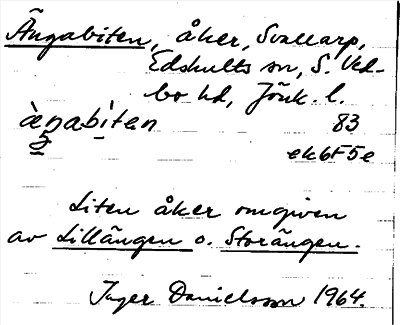 Ängabiten, åker, Svallarp,
Edshults sn, S. Ved-
bo hd, Jönk. l.
àŋabìten 83
5
ek6F5e
Liten åker omgiven
av Lillängen o. Storängen.
Inger Danielsson 1964.